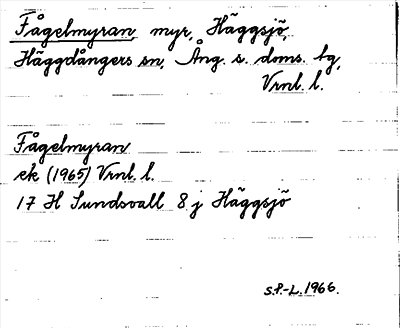 Fågelmyran, myr, Häggsjö,
Häggdångers sn, Ång. s. doms. tg,
Vrnl. l.
Fågelmyran
ek (1965) Vrnl. l.
17 H Sundsvall 8 j Häggsjö
S.P.-L. 1966.